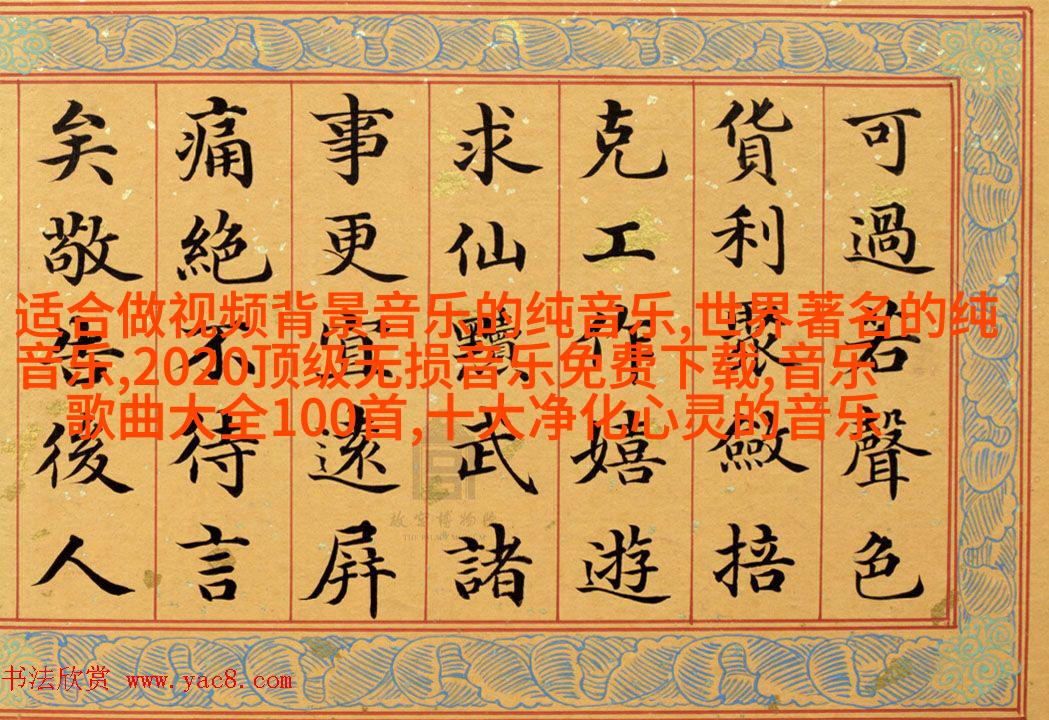 可過若聲色
貨利聚斂掊
克工作嬉遊
求仙黷武諸
事更宜遠屏
痛絕不待言
矣敬告後人
适合做视频背景音乐的纯音乐,世界著名的纯
音乐,2020顶级无损音乐免费下载,音乐
歌曲大全100首,十大净化心灵的音乐
故宫博物院
书法欣赏 www.yac8.com